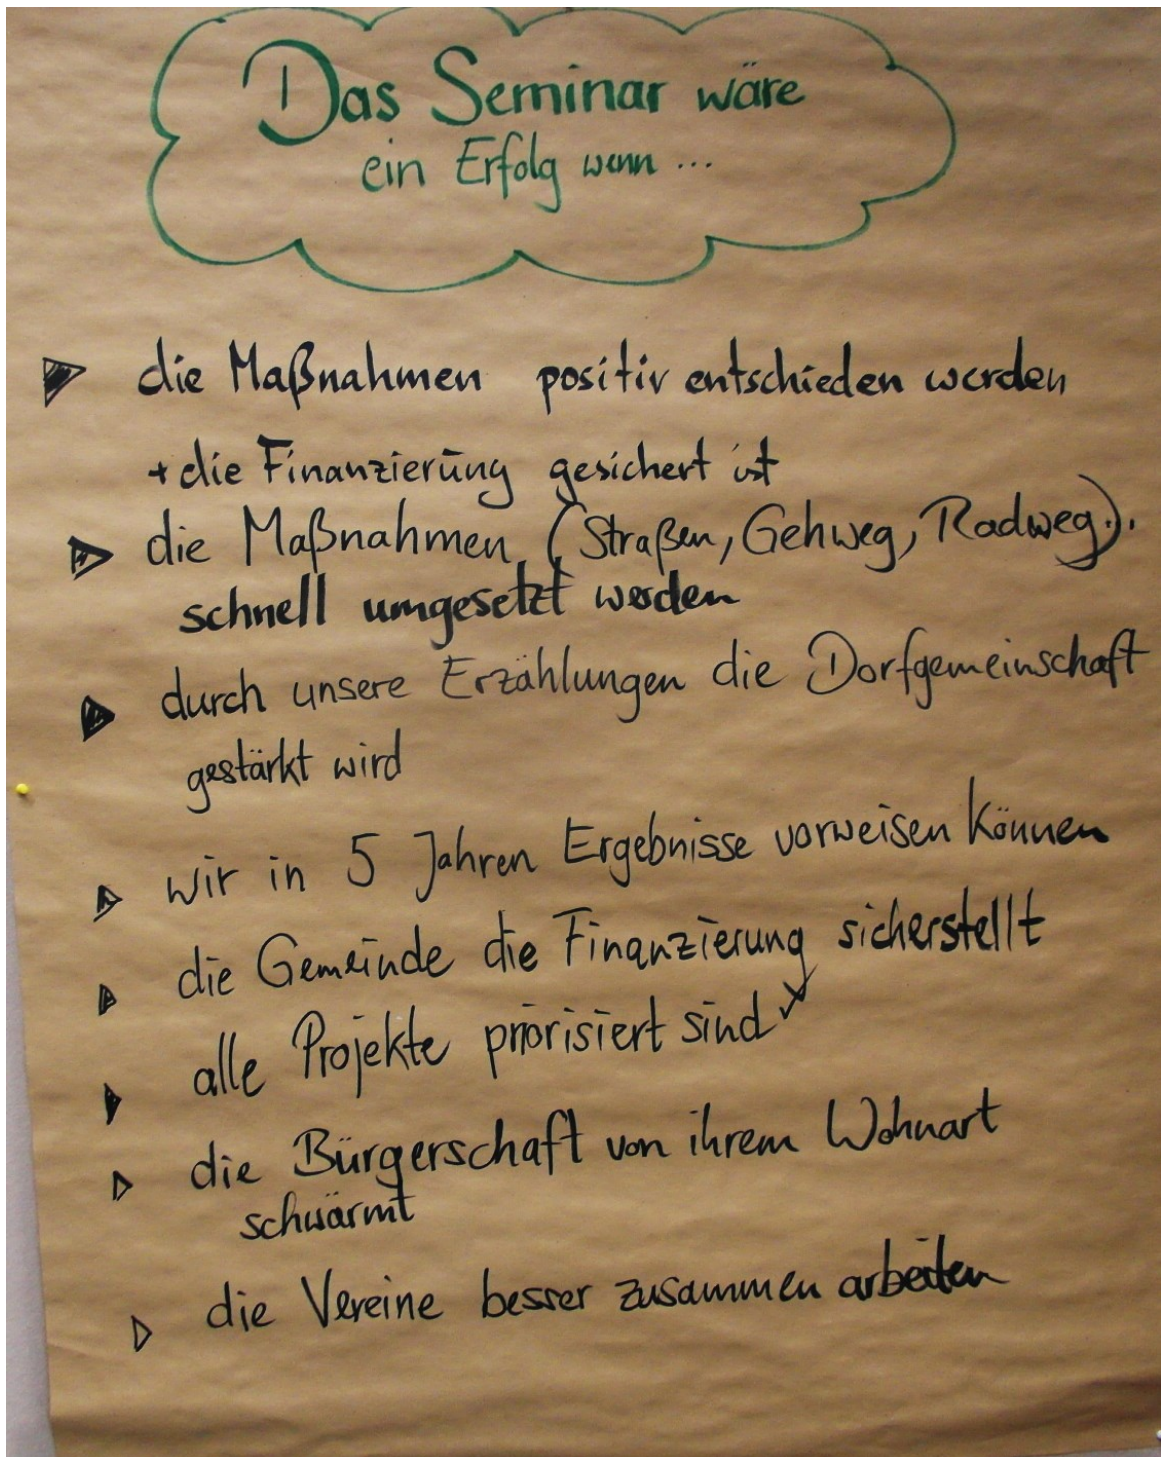 Das Seminar wäre
ein Erfolg wenn ...
die Maßnahmen positiv entschieden werden
+ die Finanzierung gesichert ist
die Maßnahmen (Straßen, Gehweg, Radweg..)
schnell umgesetzt werden
durch unsere Erzählungen die Dorfgemeinschaft
gestärkt wird
wir in 5 Jahren Ergebnisse vorweisen können
die Gemeinde die Finanzierung sicherstellt
alle Projekte priorisiert sind ✓
die Bürgerschaft von ihrem Wohnort
schwärmt
die Vereine besser zusammen arbeiten